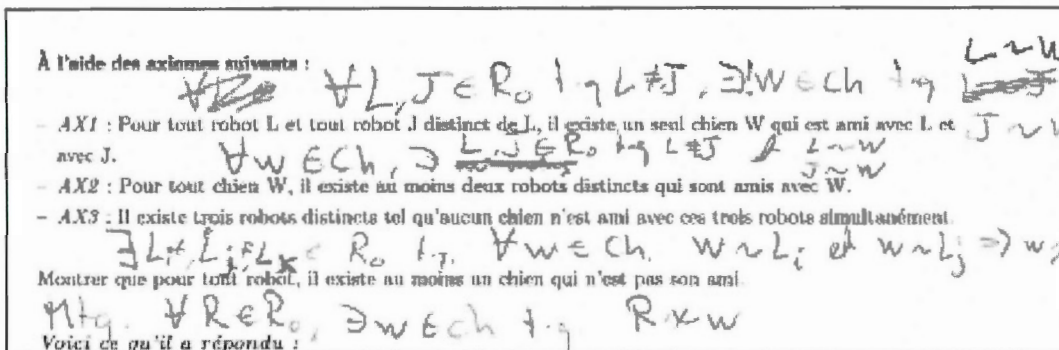 À l'aide des axiomes suivants :
∀L, J ∈ Ro tq L ≠ J, ∃!W ∈ Ch tq L ~ W
J ~ W
– AX1 : Pour tout robot L et tout robot J distinct de L, il existe un seul chien W qui est ami avec L et
avec J.
∀w ∈ Ch, ∃ L, J ∈ Ro tq L ≠ J L ~ W
J ~ W
– AX2 : Pour tout chien W, il existe au moins deux robots distincts qui sont amis avec W.
– AX3 : Il existe trois robots distincts tel qu'aucun chien n'est ami avec ces trois robots simultanément.
∃ Li ≠ Lj ≠ Lk ∈ Ro tq. ∀w ∈ Ch, w ~ Li et w ~ Lj => w
Montrer que pour tout robot, il existe au moins un chien qui n'est pas son ami.
Mtq. ∀R ∈ Ro, ∃w ∈ Ch tq R ≁ w
Voici ce qu'il a répondu :